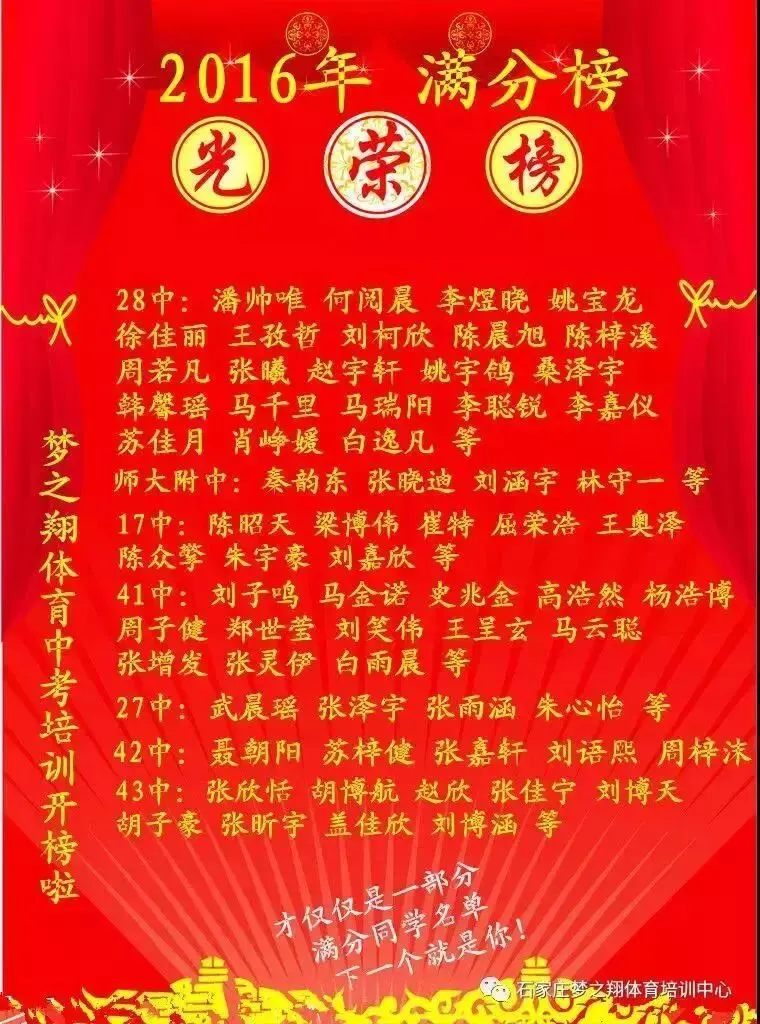 2016年 满分榜
光 荣 榜
28中：潘帅唯 何阅晨 李煜晓 姚宝龙
徐佳丽 王孜哲 刘柯欣 陈晨旭 陈梓溪
周若凡 张曦 赵宇轩 姚宇鸽 桑泽宇
韩馨瑶 马千里 马瑞阳 李聪锐 李嘉仪
苏佳月 肖峥媛 白逸凡 等
师大附中：秦韵东 张晓迪 刘涵宇 林守一 等
17中：陈昭天 梁博伟 崔特 屈荣浩 王奥泽
陈众擎 朱宇豪 刘嘉欣 等
41中：刘子鸣 马金诺 史兆金 高浩然 杨浩博
周子健 郑世莹 刘笑伟 王呈玄 马云聪
张增发 张灵伊 白雨晨 等
27中：武晨瑶 张泽宇 张雨涵 朱心怡 等
42中：聂朝阳 苏梓健 张嘉轩 刘语熙 周梓沫
43中：张欣恬 胡博航 赵欣 张佳宁 刘博天
胡子豪 张昕宇 盖佳欣 刘博涵 等
梦之翔体育中考培训开榜啦
才仅仅是一部分
满分同学名单
下一个就是你！
石家庄梦之翔体育培训中心